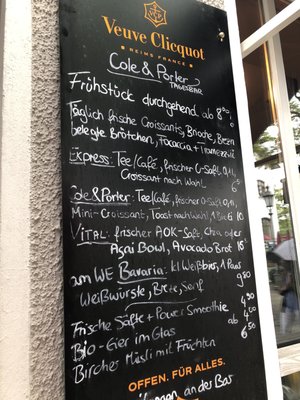 Veuve Clicquot
REIMS FRANCE
Cole & Porter
TAGESBAR
Frühstück durchgehend ab 8⁰⁰
Täglich frische Croissants, Brioche, Brezen
belegte Brötchen, Focaccia + Tramezzini
Express: Tee/Café, frischer O-Saft 0,1l,
Croissant nach Wahl 6⁵⁰
Cole & Porter: Tee/Café, frischer O-Saft 0,1l,
Mini-Croissant, Toast nach Wahl, 1 Bio Ei 10
Vital: frischer AOK-Saft, Chia oder
Açai Bowl, Avocado Brot 15
am WE Bavaria: kl. Weißbier, 1 Paar
Weißwürste, Breze, Senf 9⁸⁰
Frische Säfte + Power Smoothie ab 4⁹⁰
Bio-Eier im Glas 4⁵⁰
Bircher Müsli mit Früchten 6⁵⁰
OFFEN. FÜR ALLES.
an der Bar